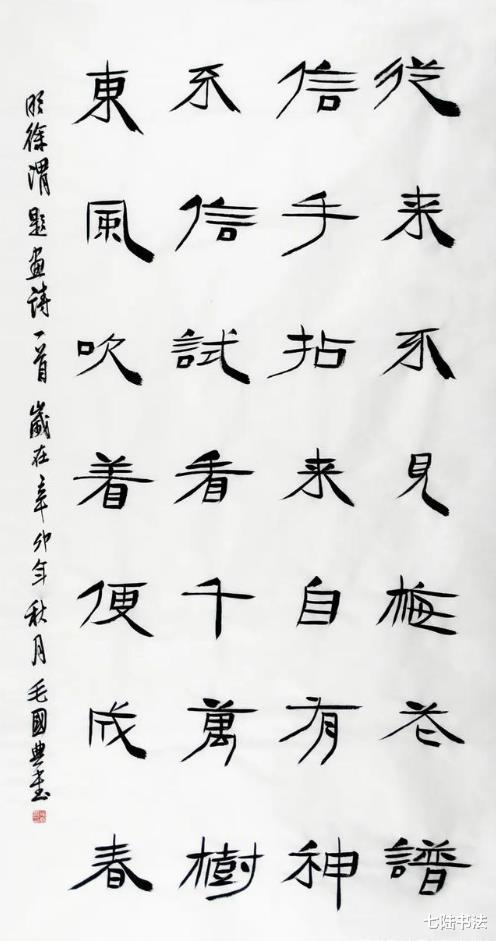 從来不見梅花譜
信手拈来自有神
不信試看千萬樹
東風吹着便成春
明徐渭題畫詩一首 歲在辛卯年秋月 毛國典書
七陆书法